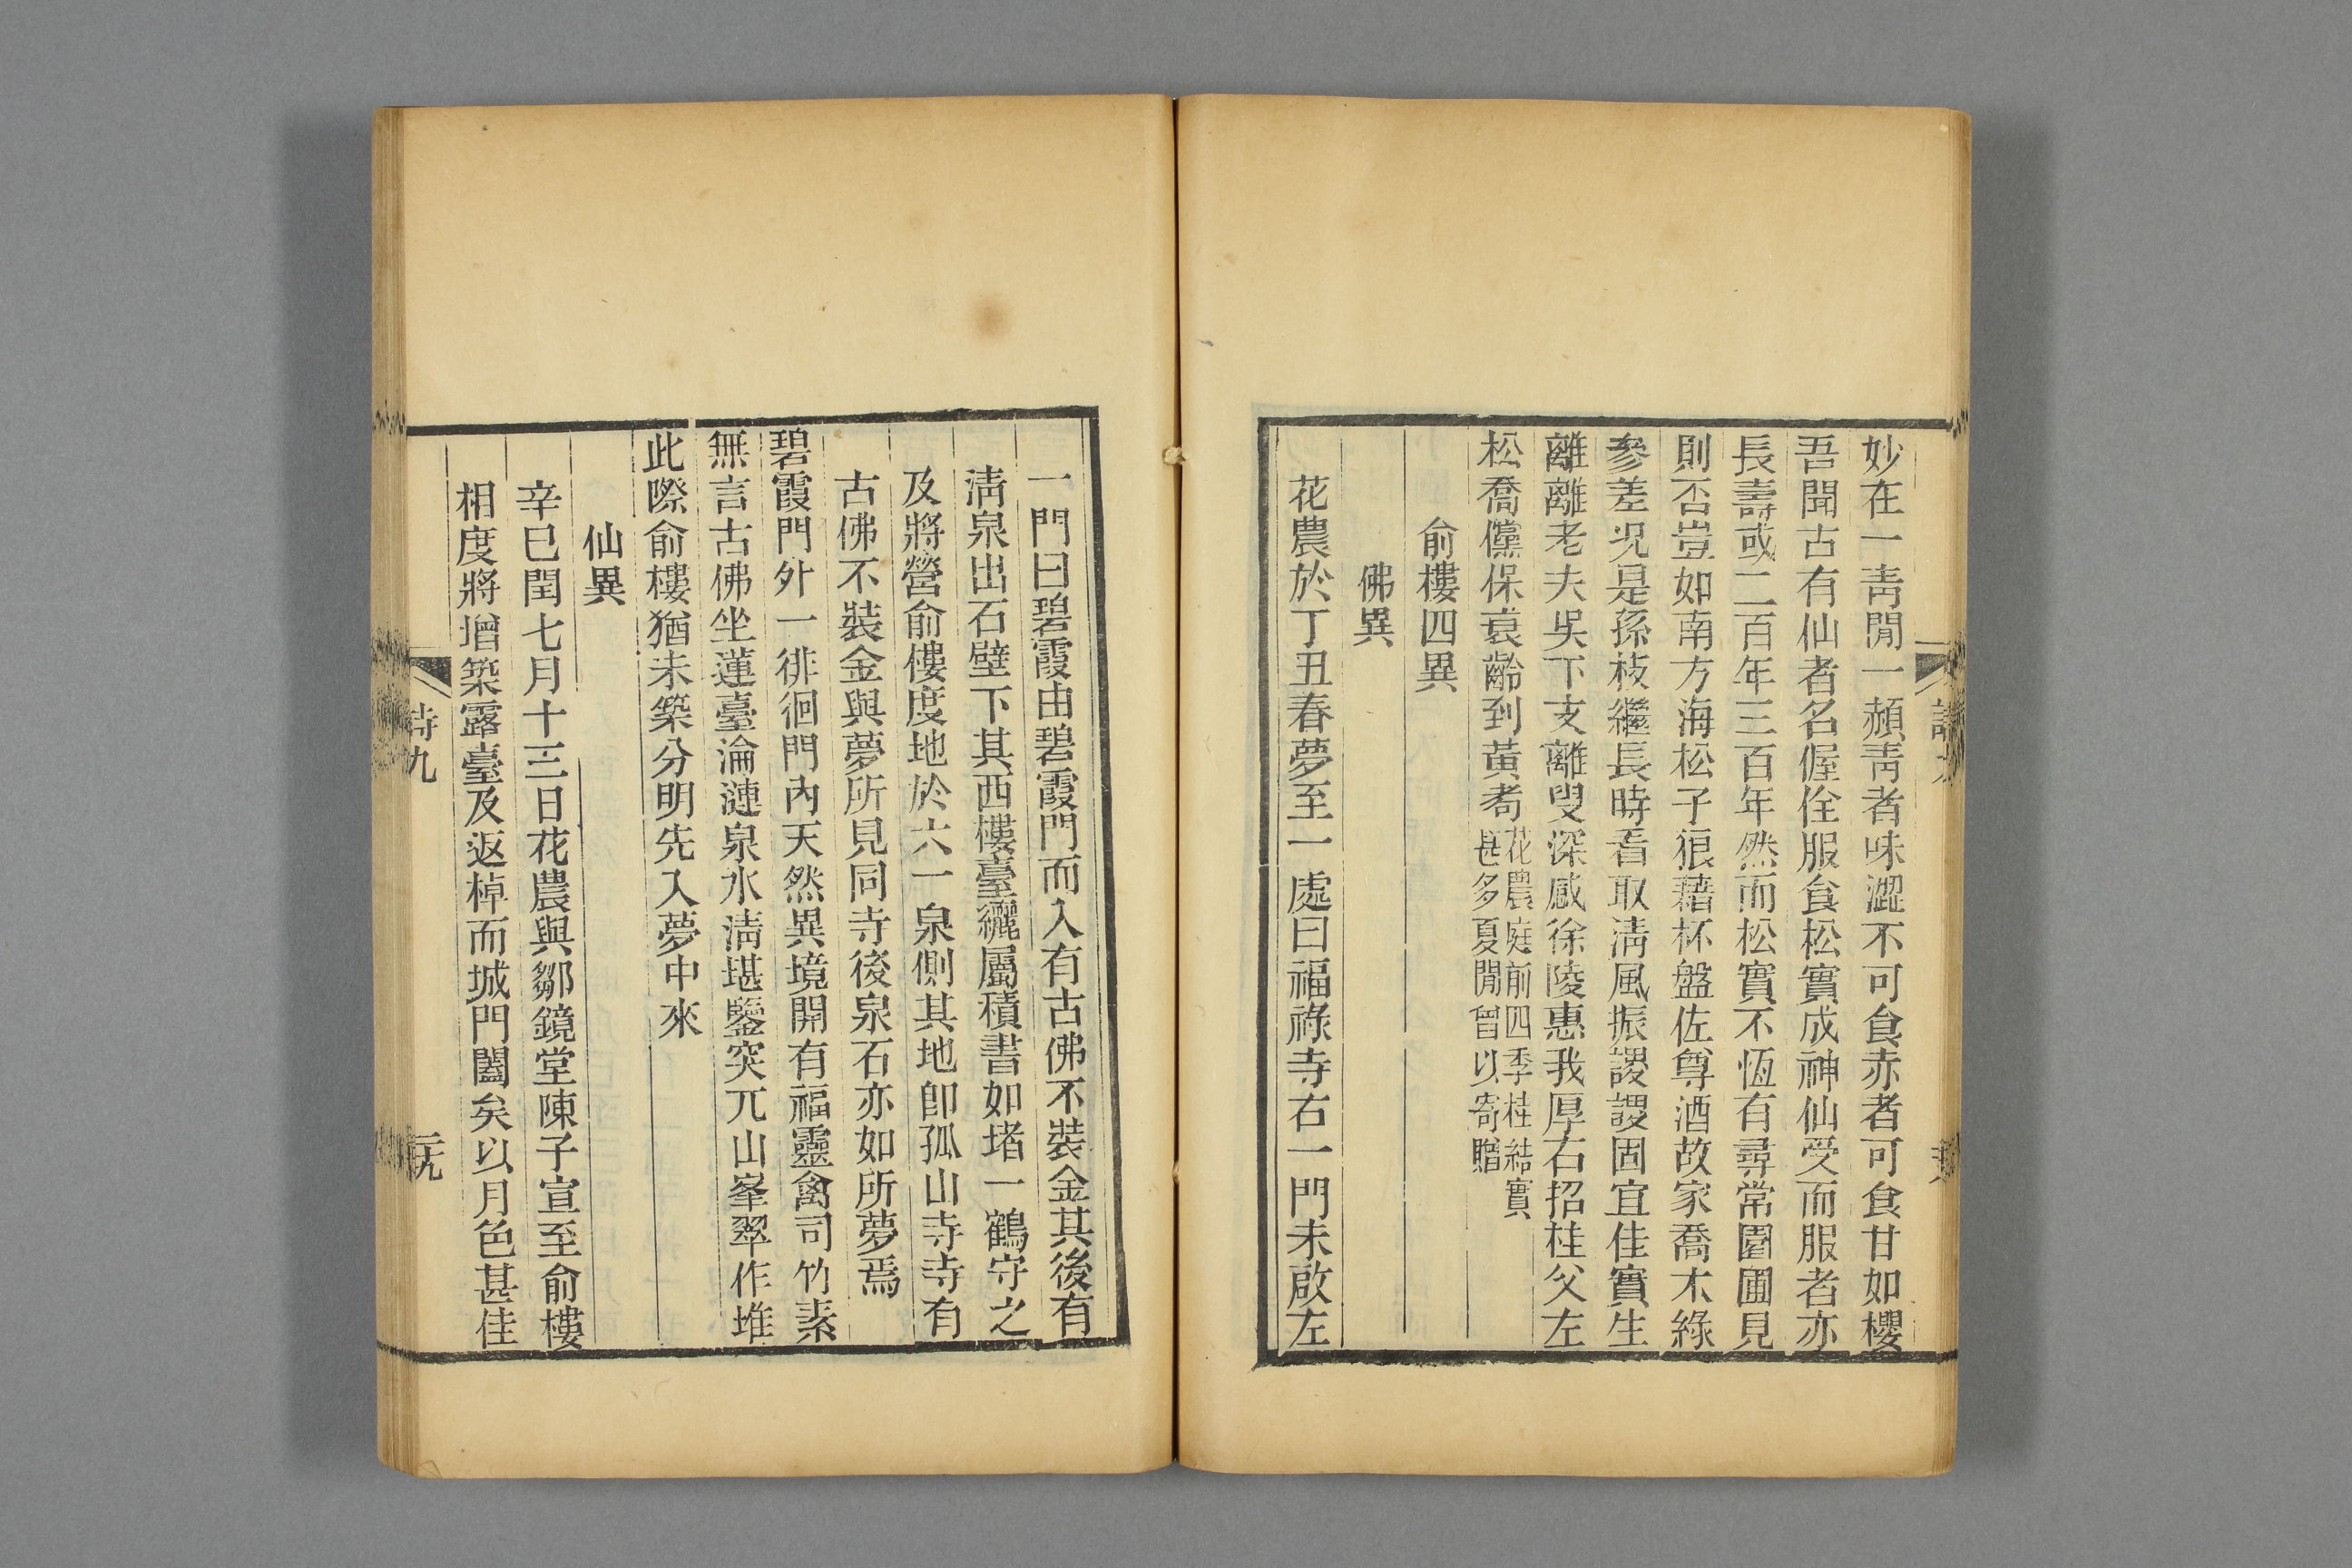 妙在一靑閒一頳靑者味澀不可食赤者可食甘如櫻
吾聞古有仙者名偓佺服食松實成神仙受而服者亦
長壽或二百年三百年然而松實不恆有尋常園圃見
則否豈如南方海松子狠藉杯盤佐尊酒故家喬木綠
參差況是孫枝繼長時看取淸風振謖謖固宜佳實生
離離老夫吳下支離叟深感徐陵惠我厚右招桂父左
松喬儻保衰齡到黃耇花農庭前四季桂結實
甚多夏閒曾以寄贈
俞樓四異
佛異
花農於丁丑春夢至一處曰福祿寺右一門未啟左
一門曰碧霞由碧霞門而入有古佛不裝金其後有
淸泉出石壁下其西樓臺纚屬積書如堵一鶴守之
及將營俞樓度地於六一泉側其地卽孤山寺寺有
古佛不裝金與夢所見同寺後泉石亦如所夢焉
碧霞門外一徘徊門內天然異境開有福靈禽司竹素
無言古佛坐蓮臺淪漣泉水淸堪鑒突兀山峯翠作堆
此際俞樓猶未築分明先入夢中來
仙異
辛巳閏七月十三日花農與鄒鏡堂陳子宣至俞樓
相度將增築露臺及返棹而城門闔矣以月色甚佳
詩九